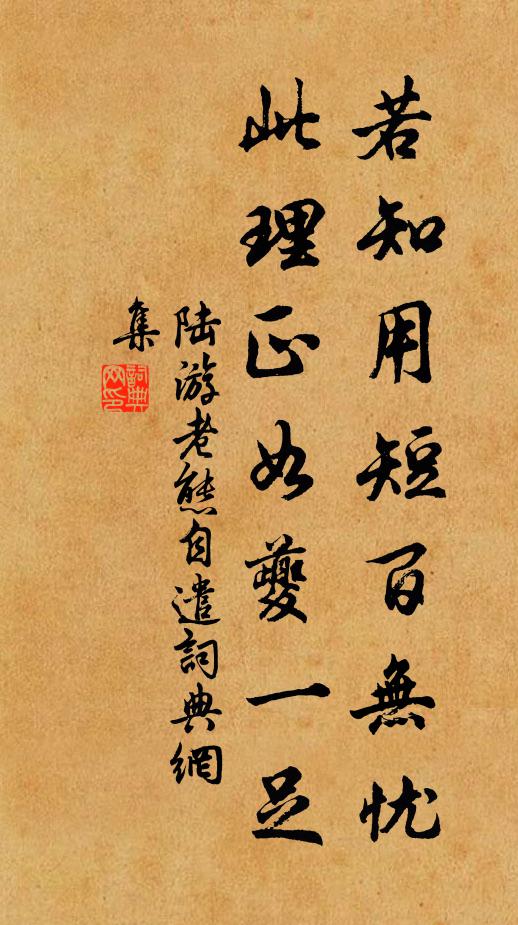 若知用短百無忧
此理正如夔一足
陆游老態自遣詞典網
集
詞典
网印